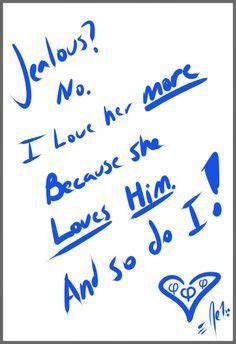 Jealous?
No.
I Love her more
Because she
Loves Him.
And so do I!
φ φ φ